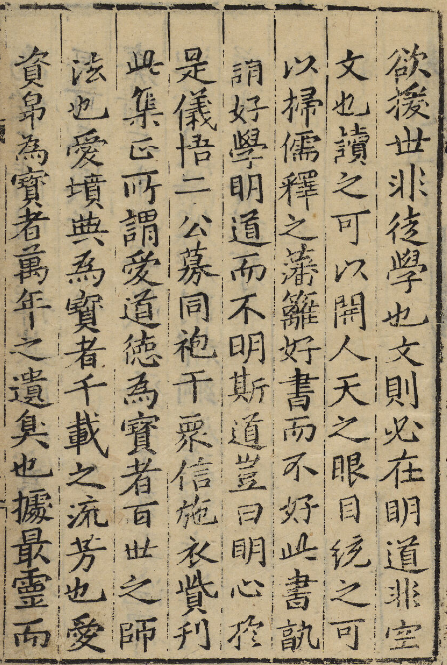 欲援世非徒學也文則必在明道非空
文也讀之可以開人天之眼目统之可
以掃儒釋之藩籬好書而不好此書孰
謂好學明道而不明斯道豈曰明心扵
是儀悟二公募同袍干衆信施衣貲刋
此集正所謂愛道德為寳者百世之師
法也愛墳典為寳者千載之流芳也愛
資帛為寳者萬年之遺臭也據最靈而